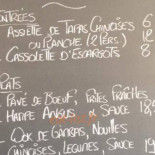 ENTRÉES
_ ASSIETTE DE TAPAS CHINOISES 6
OU PLANCHE (2 PERS.) 12
_ CASSOLETTE D'ESCARGOTS 8
PLATS
_ PAVÉ DE BOEUF, FRITES FRAÎCHES
_ HAMPE ANGUS & SAUCE 18,
_ WOK DE GAMBAS, NOUILLES
CHINOISES, LEGUMES, SAUCE